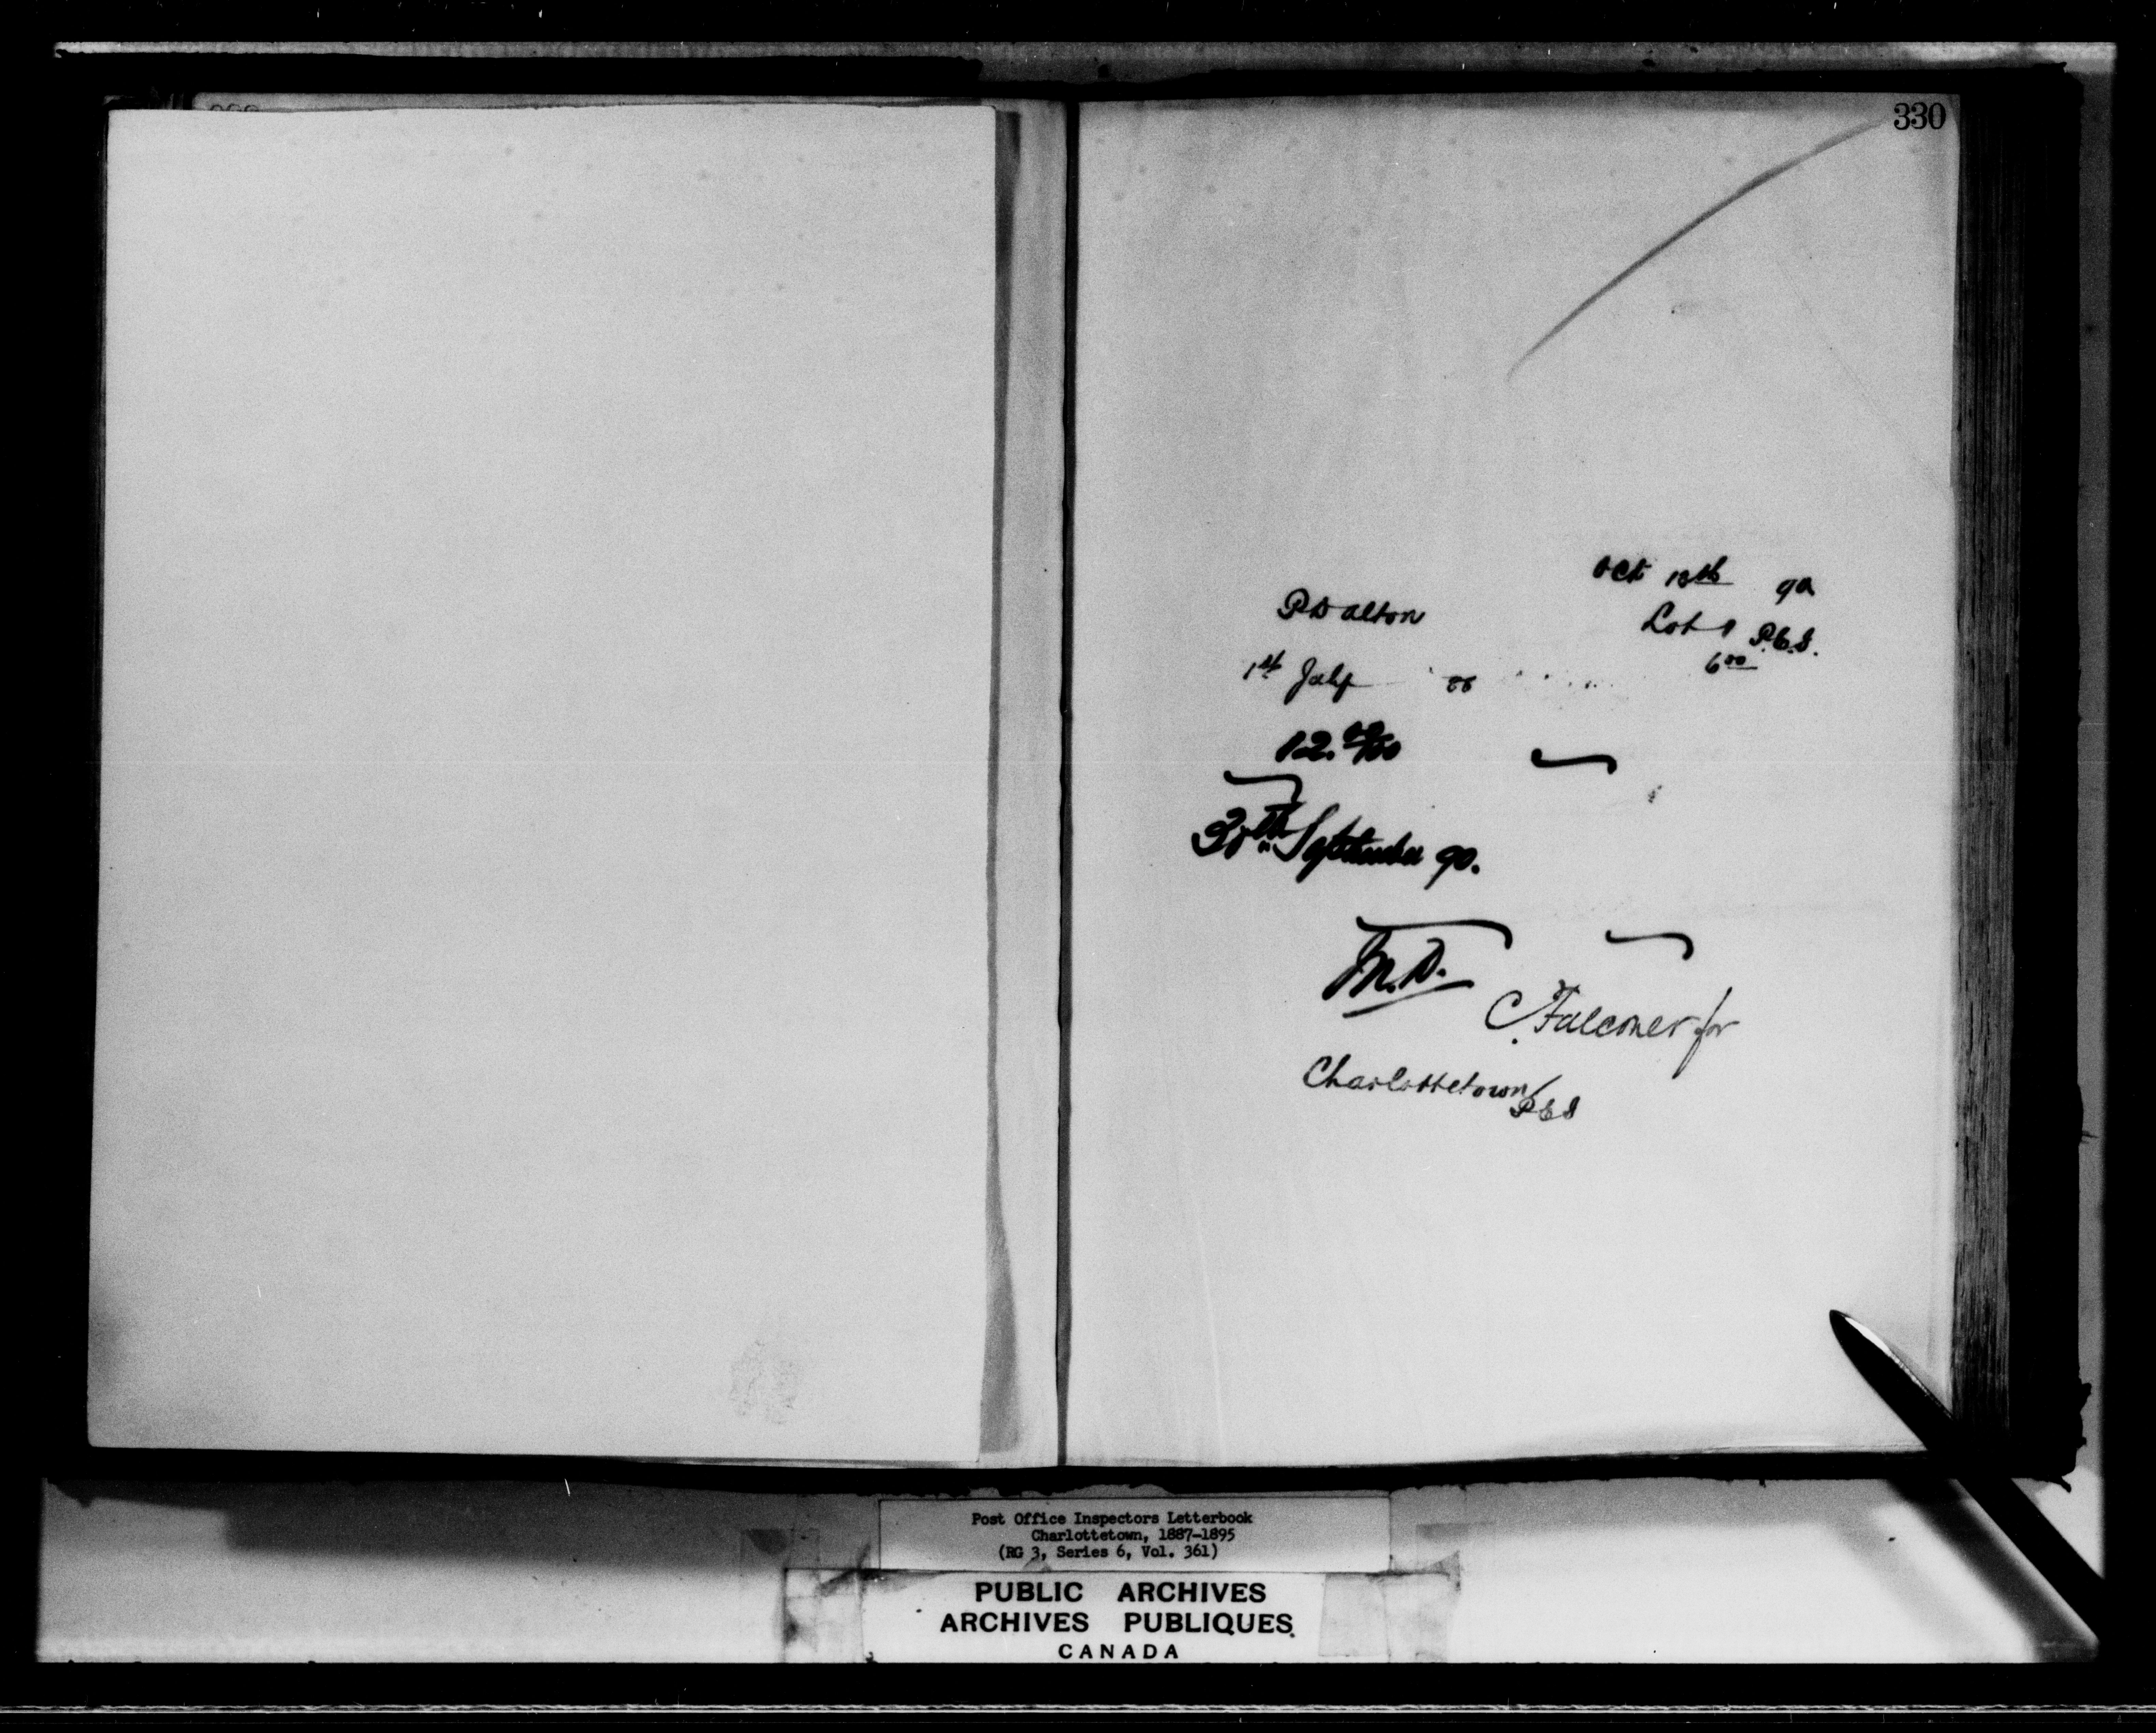 330
Oct 13th 90
P Dalton
Lot 1 P.E.I.
6 00
1st July 88
12. 00/100
30th September 90.
M.D.
C. Falconer for
Charlottetown P E I
Post Office Inspectors Letterbook
Charlottetown, 1887-1895
(RG 3, Series 6, Vol. 361)
PUBLIC ARCHIVES
ARCHIVES PUBLIQUES
CANADA